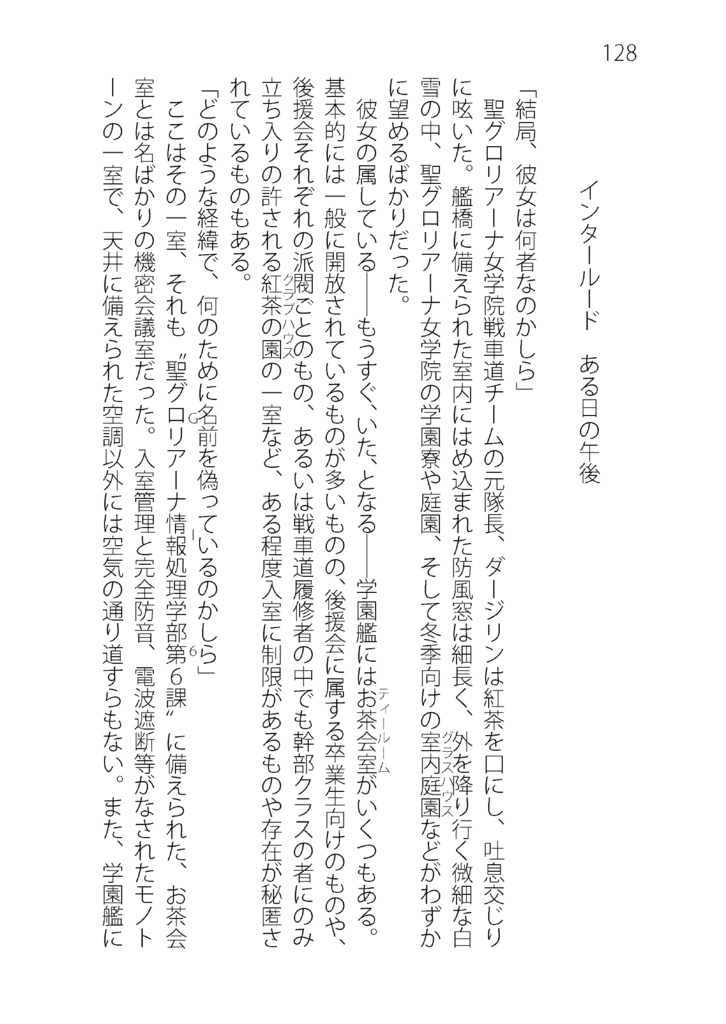 128
インタールード　ある日の午後
「結局、彼女は何者なのかしら」
　聖グロリアーナ女学院戦車道チームの元隊長、ダージリンは紅茶を口にし、吐息交じり
に呟いた。艦橋に備えられた室内にはめ込まれた防風窓は細長く、外を降り行く微細な白
雪の中、聖グロリアーナ女学院の学園寮や庭園、そして冬季向けの室内庭園などがわずか
グラスハウス
に望めるばかりだった。
　彼女の属している――もうすぐ、いた、となる――学園艦にはお茶会室がいくつもある。
ティールーム
基本的には一般に開放されているものが多いものの、後援会に属する卒業生向けのものや、
後援会それぞれの派閥ごとのもの、あるいは戦車道履修者の中でも幹部クラスの者にのみ
立ち入りの許される紅茶の園の一室など、ある程度入室に制限があるものや存在が秘匿さ
クラブハウス
れているものもある。
「どのような経緯で、何のために名前を偽っているのかしら」
　ここはその一室、それも〝聖グロリアーナ情報処理学部第６課〟に備えられた、お茶会
G I 6
室とは名ばかりの機密会議室だった。入室管理と完全防音、電波遮断等がなされたモノト
ーンの一室で、天井に備えられた空調以外には空気の通り道すらもない。また、学園艦に